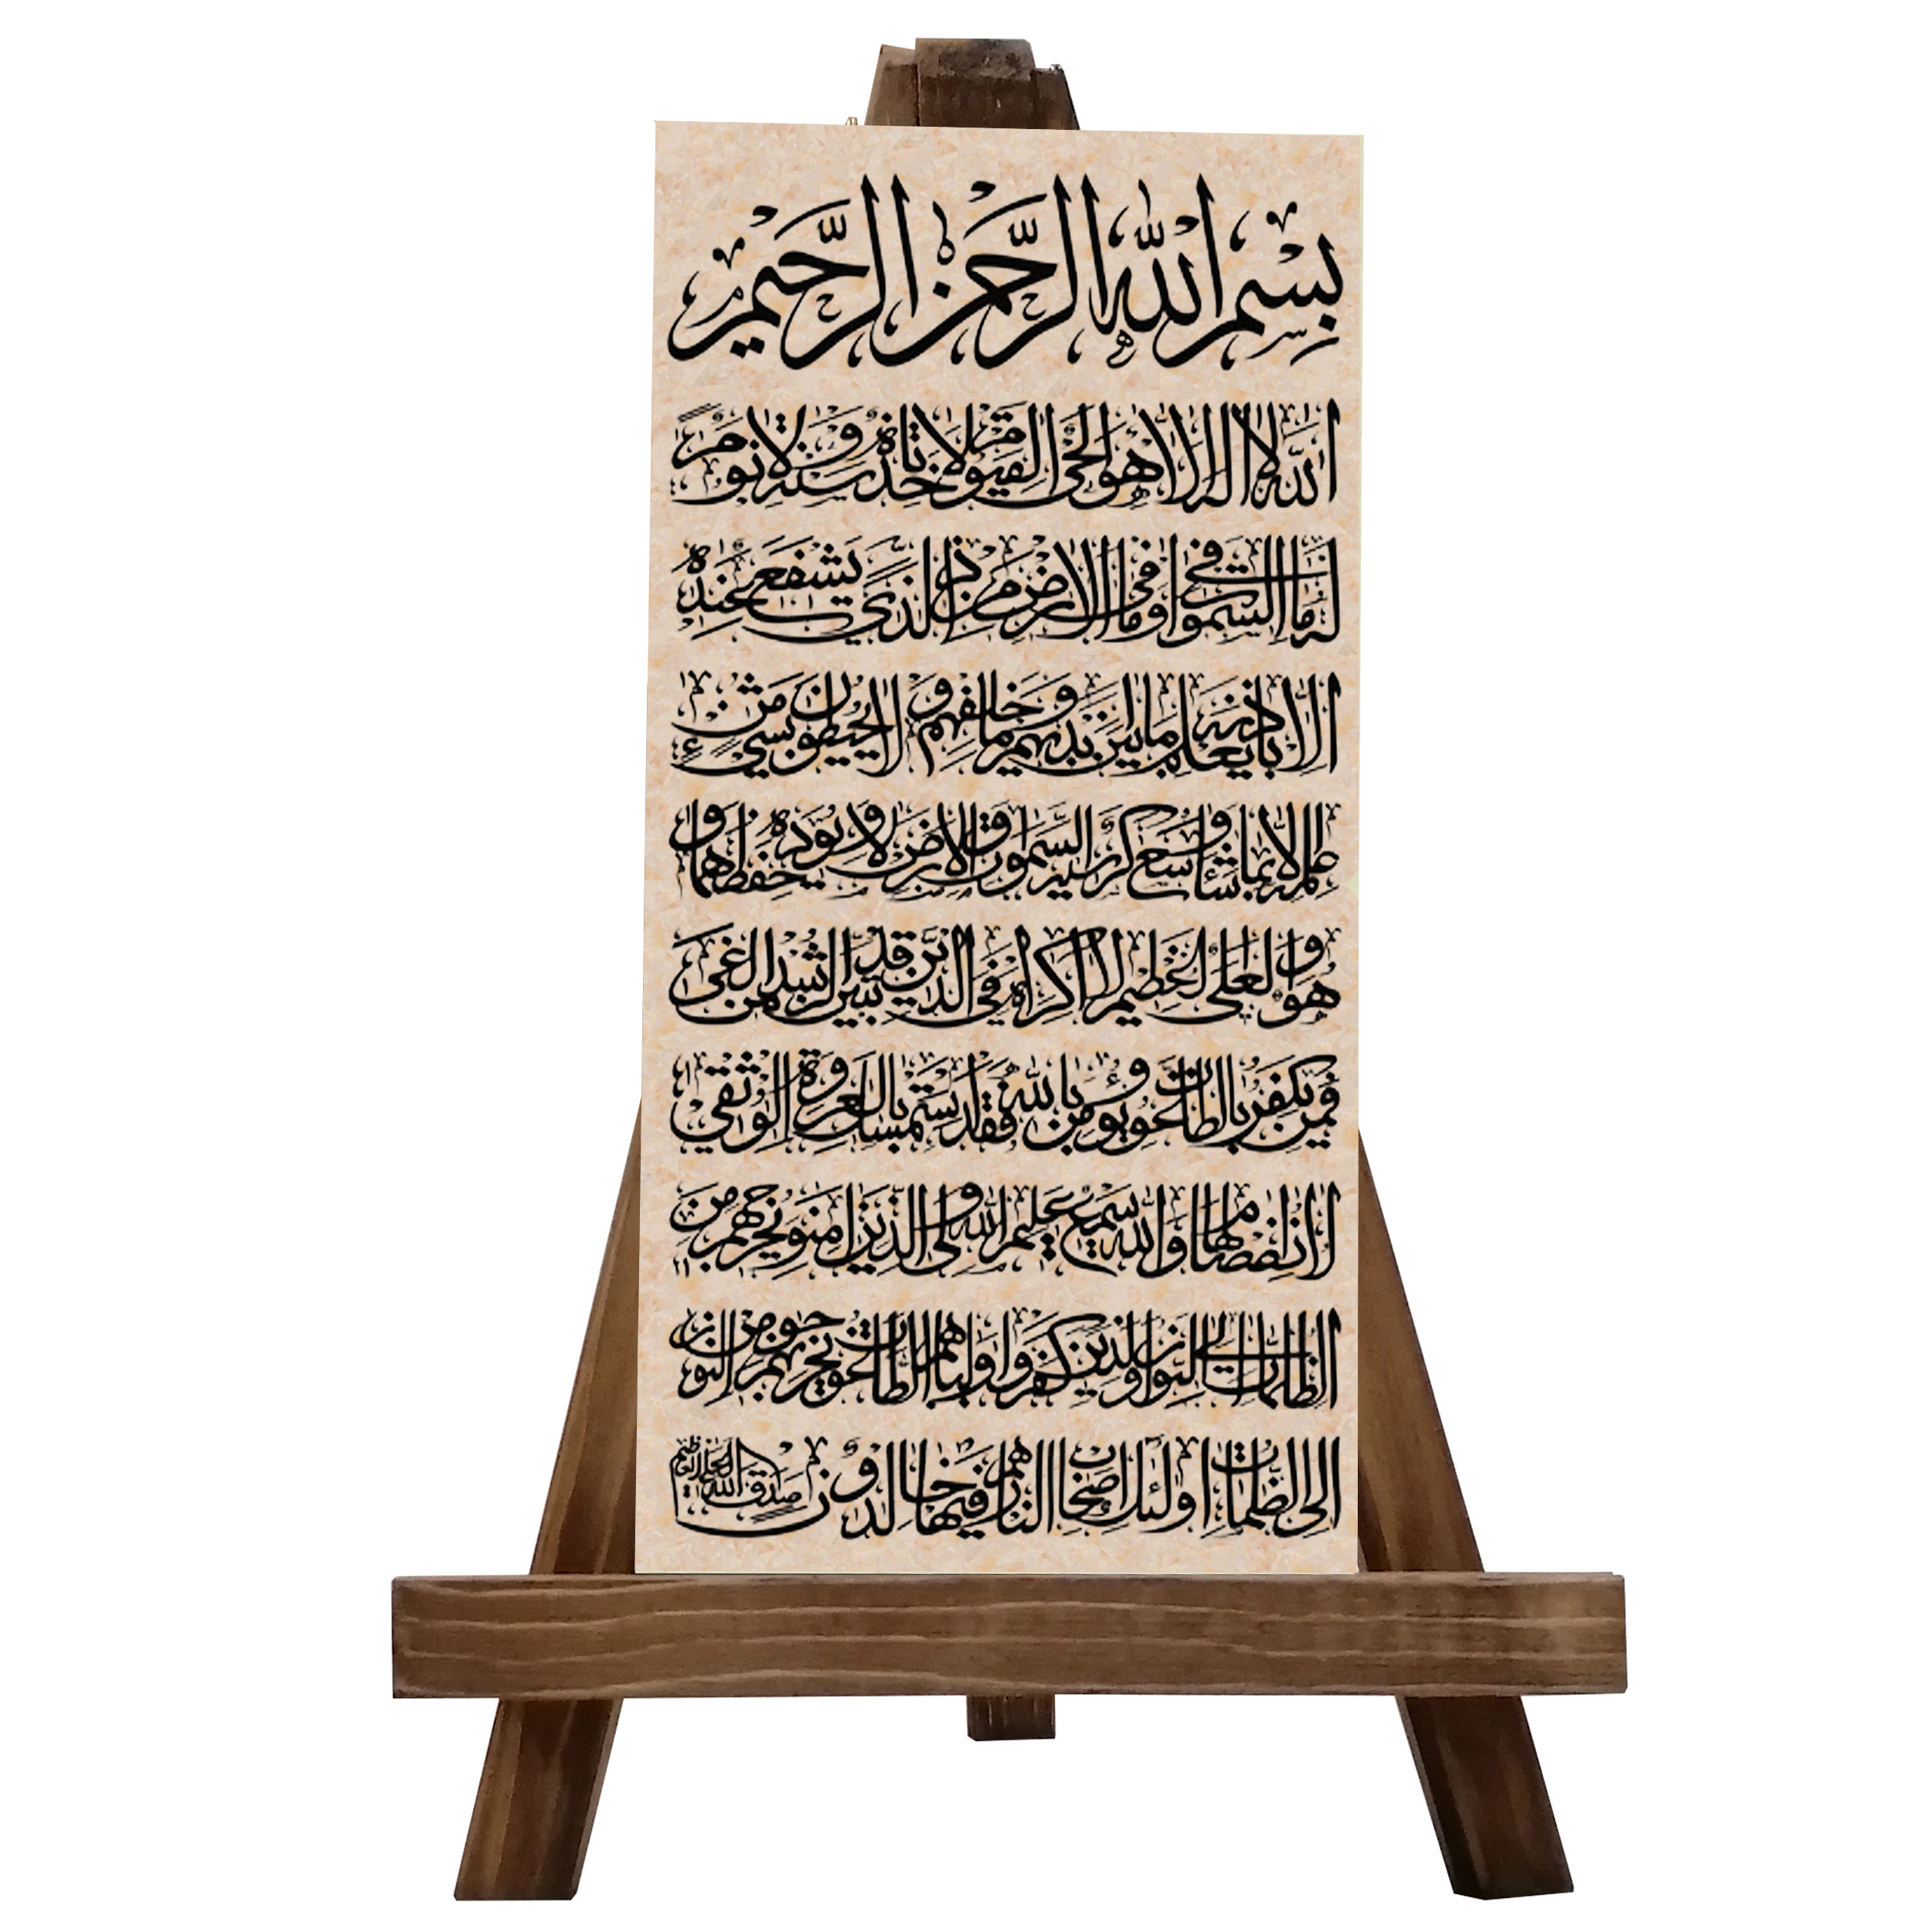 بسم الله الرحمن الرحيم
الله لا اله الا هو الحي القيوم لا تاخذه سنة ولا نوم
له ما في السموات وما في الارض من ذا الذي يشفع عنده
الا باذنه يعلم ما بين يديهم وما خلفهم ولا يحيطون بشيء من
علمه الا بما شاء وسع كرسيه السموات والارض ولا يؤده حفظهما و
هو العلي العظيم لا اكراه في الدين قد تبين الرشد من الغي
فمن يكفر بالطاغوت ويؤمن بالله فقد استمسك بالعروة الوثقى
لا انفصام لها والله سميع عليم الله ولي الذين امنوا يخرجهم من
الظلمات الى النور والذين كفروا اولياؤهم الطاغوت يخرجونهم من النور
الى الظلمات اولئك اصحاب النار هم فيها خالدون صدق الله العلي العظيم